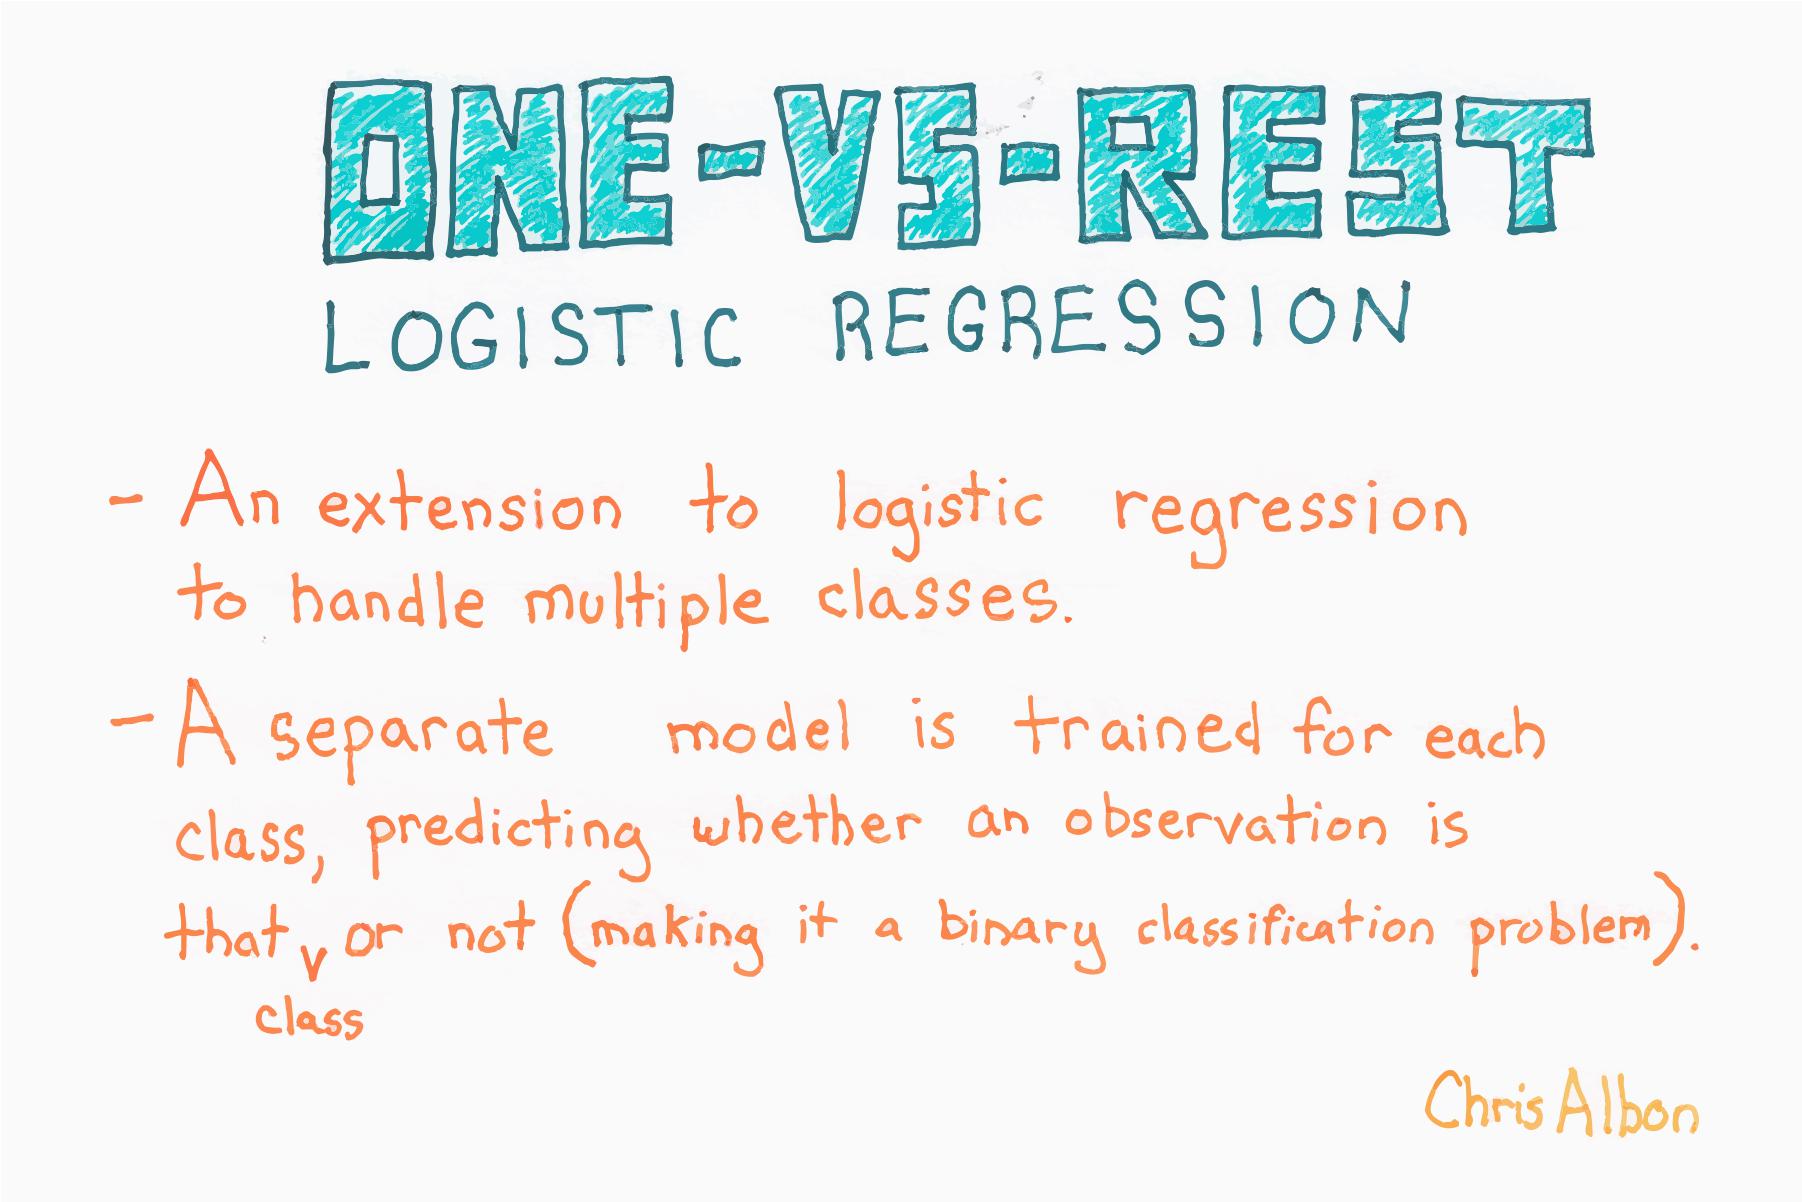 ONE-VS-REST
LOGISTIC REGRESSION
- An extension to logistic regression
to handle multiple classes.
- A separate model is trained for each
class, predicting whether an observation is
that v or not (making it a binary classification problem).
class
Chris Albon